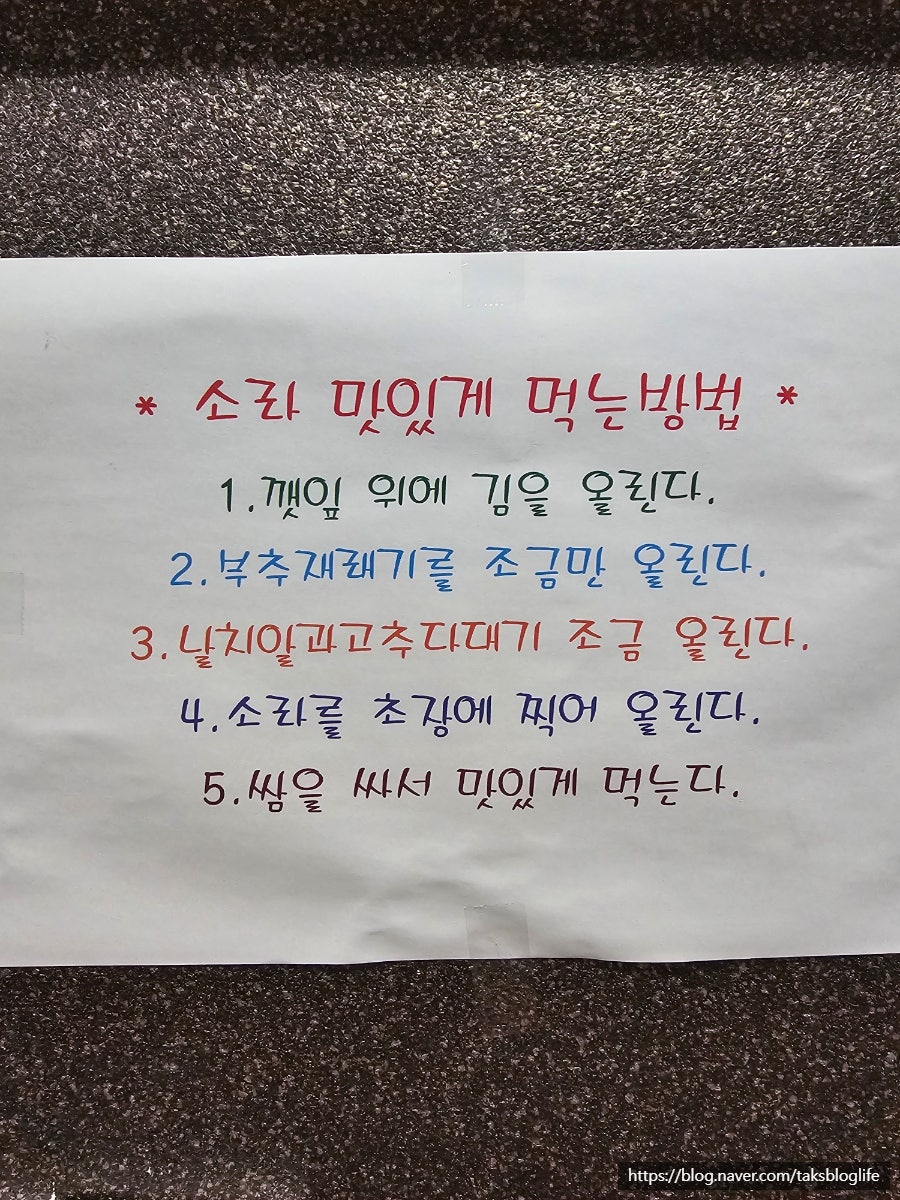 * 소라 맛있게 먹는방법 *
1.깻잎 위에 김을 올린다.
2.부추재래기를 조금만 올린다.
3.날치알과고추다대기 조금 올린다.
4.소라를 초장에 찍어 올린다.
5.쌈을 싸서 맛있게 먹는다.
https://blog.naver.com/taksbloglife